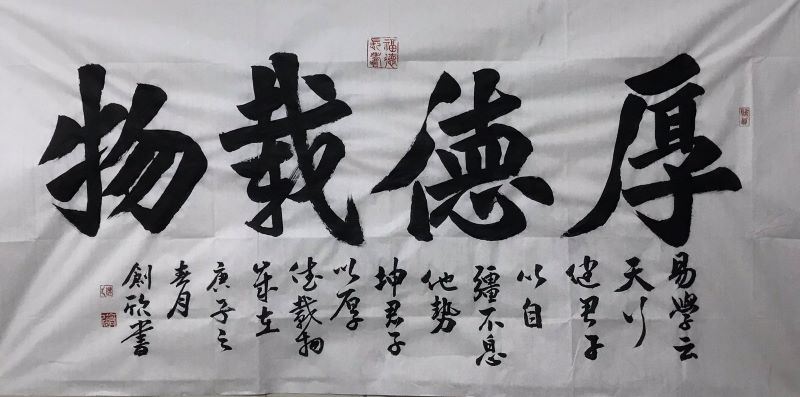 厚德載物
福德
長壽
易學云
天行
健君子
以自
疆不息
地勢
坤君子
以厚
德載物
歲在
庚子之
春月
創欣書